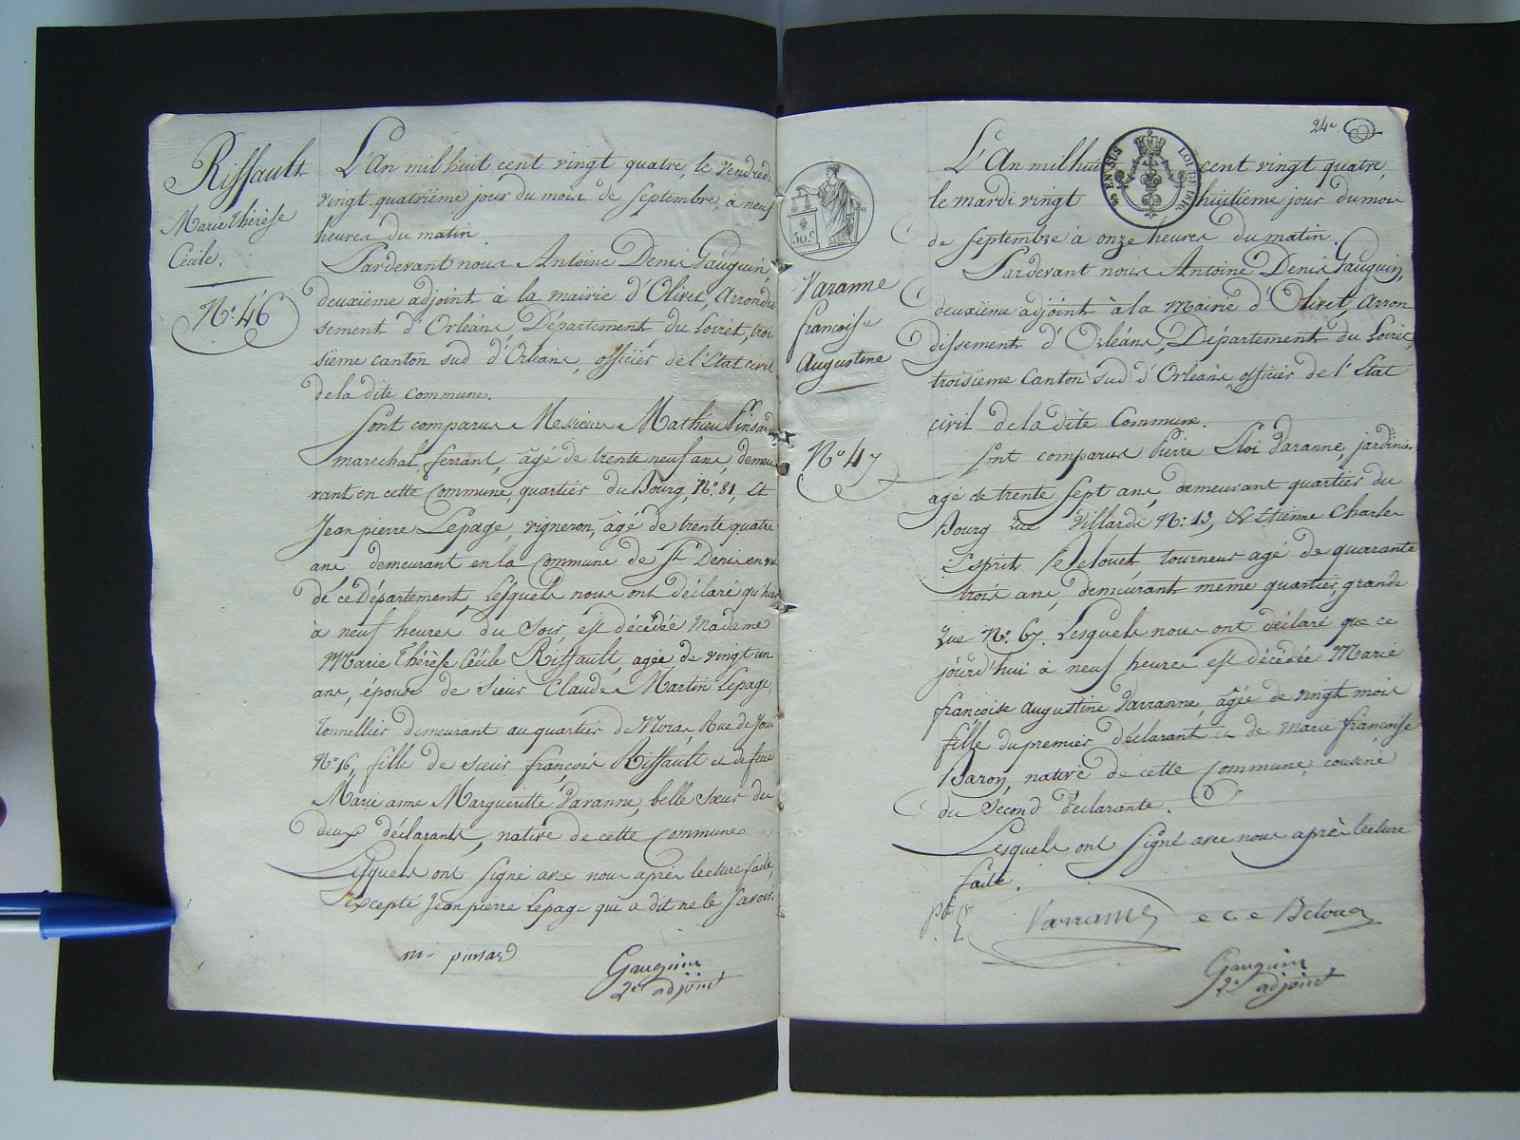 Riffault
Marie Thérèse
Cécile.
N.° 46
L'An mil huit cent vingt quatre, le vendredi
vingt quatrième jour du mois de septembre, à neuf
heures du matin.
Pardevant nous Antoine Denis Gauguin,
deuxième adjoint à la mairie d'Olivet, Arrondis
sement d'Orléans, Département du Loiret, troi
sième canton sud d'Orléans, officier de l'Etat civil
de la dite commune.
Sont comparus Messieurs Mathieu Pinsard
marechal ferrant, âgé de trente neuf ans, demeu
rant en cette Commune, quartier du Bourg, N.° 81, Et
Jean pierre Lepage, vigneron, âgé de trente quatre
ans demeurant en la Commune de St Denis en val
de ce Département, Lesquels nous ont déclaré qu'hier
à neuf heures du soir, est décédée Madame
Marie Thérèse Cécile Riffault, agée de vingt un
ans, épouse de sieur Claude Martin Lepage,
tonnellier demeurant au quartier de Rue de
N.° 16, fille de sieur françois Riffault et de feue
Marie anne Margueritte Varanne, belle sœur du
deux déclarants, native de cette Commune
Lesquels ont signé avec nous après lecture faite,
Excepté Jean pierre Lepage qui a dit ne le savoir.
m pinsard
Gauguin
2e adjoint
24e
EN SUS
LOI DE
50 c
Varanne
françoise
Augustine
N.° 47
L'An mil huit cent vingt quatre,
le mardi vingt huitième jour du mois
de septembre à onze heures du matin.
Pardevant nous Antoine Denis Gauguin,
deuxième adjoint à la Mairie d'Olivet, Arron
dissement d'Orléans, Département du Loiret,
troisième Canton sud d'Orléans officier de l'Etat
civil de la dite Commune.
Sont comparus Pierre Eloi Varanne, jardinier
agé de trente sept ans, demeurant quartier du
Bourg rue Villarde N.° 13, & Etienne Charles
Esprit Belouet, tourneur agé de quarante
trois ans, demeurant même quartier, grande
Rue N.° 67. Lesquels nous ont déclaré que ce
jourd'hui à neuf heures est décédée Marie
françoise Augustine Varranne, âgée de vingt mois
fille du premier déclarant et de Marie françoise
Baron, native de cette Commune, cousine
du Second déclarante.
Lesquels ont signé avec nous après lecture
faite.
Varranne e c e Belouet
Gauguin
2e adjoint